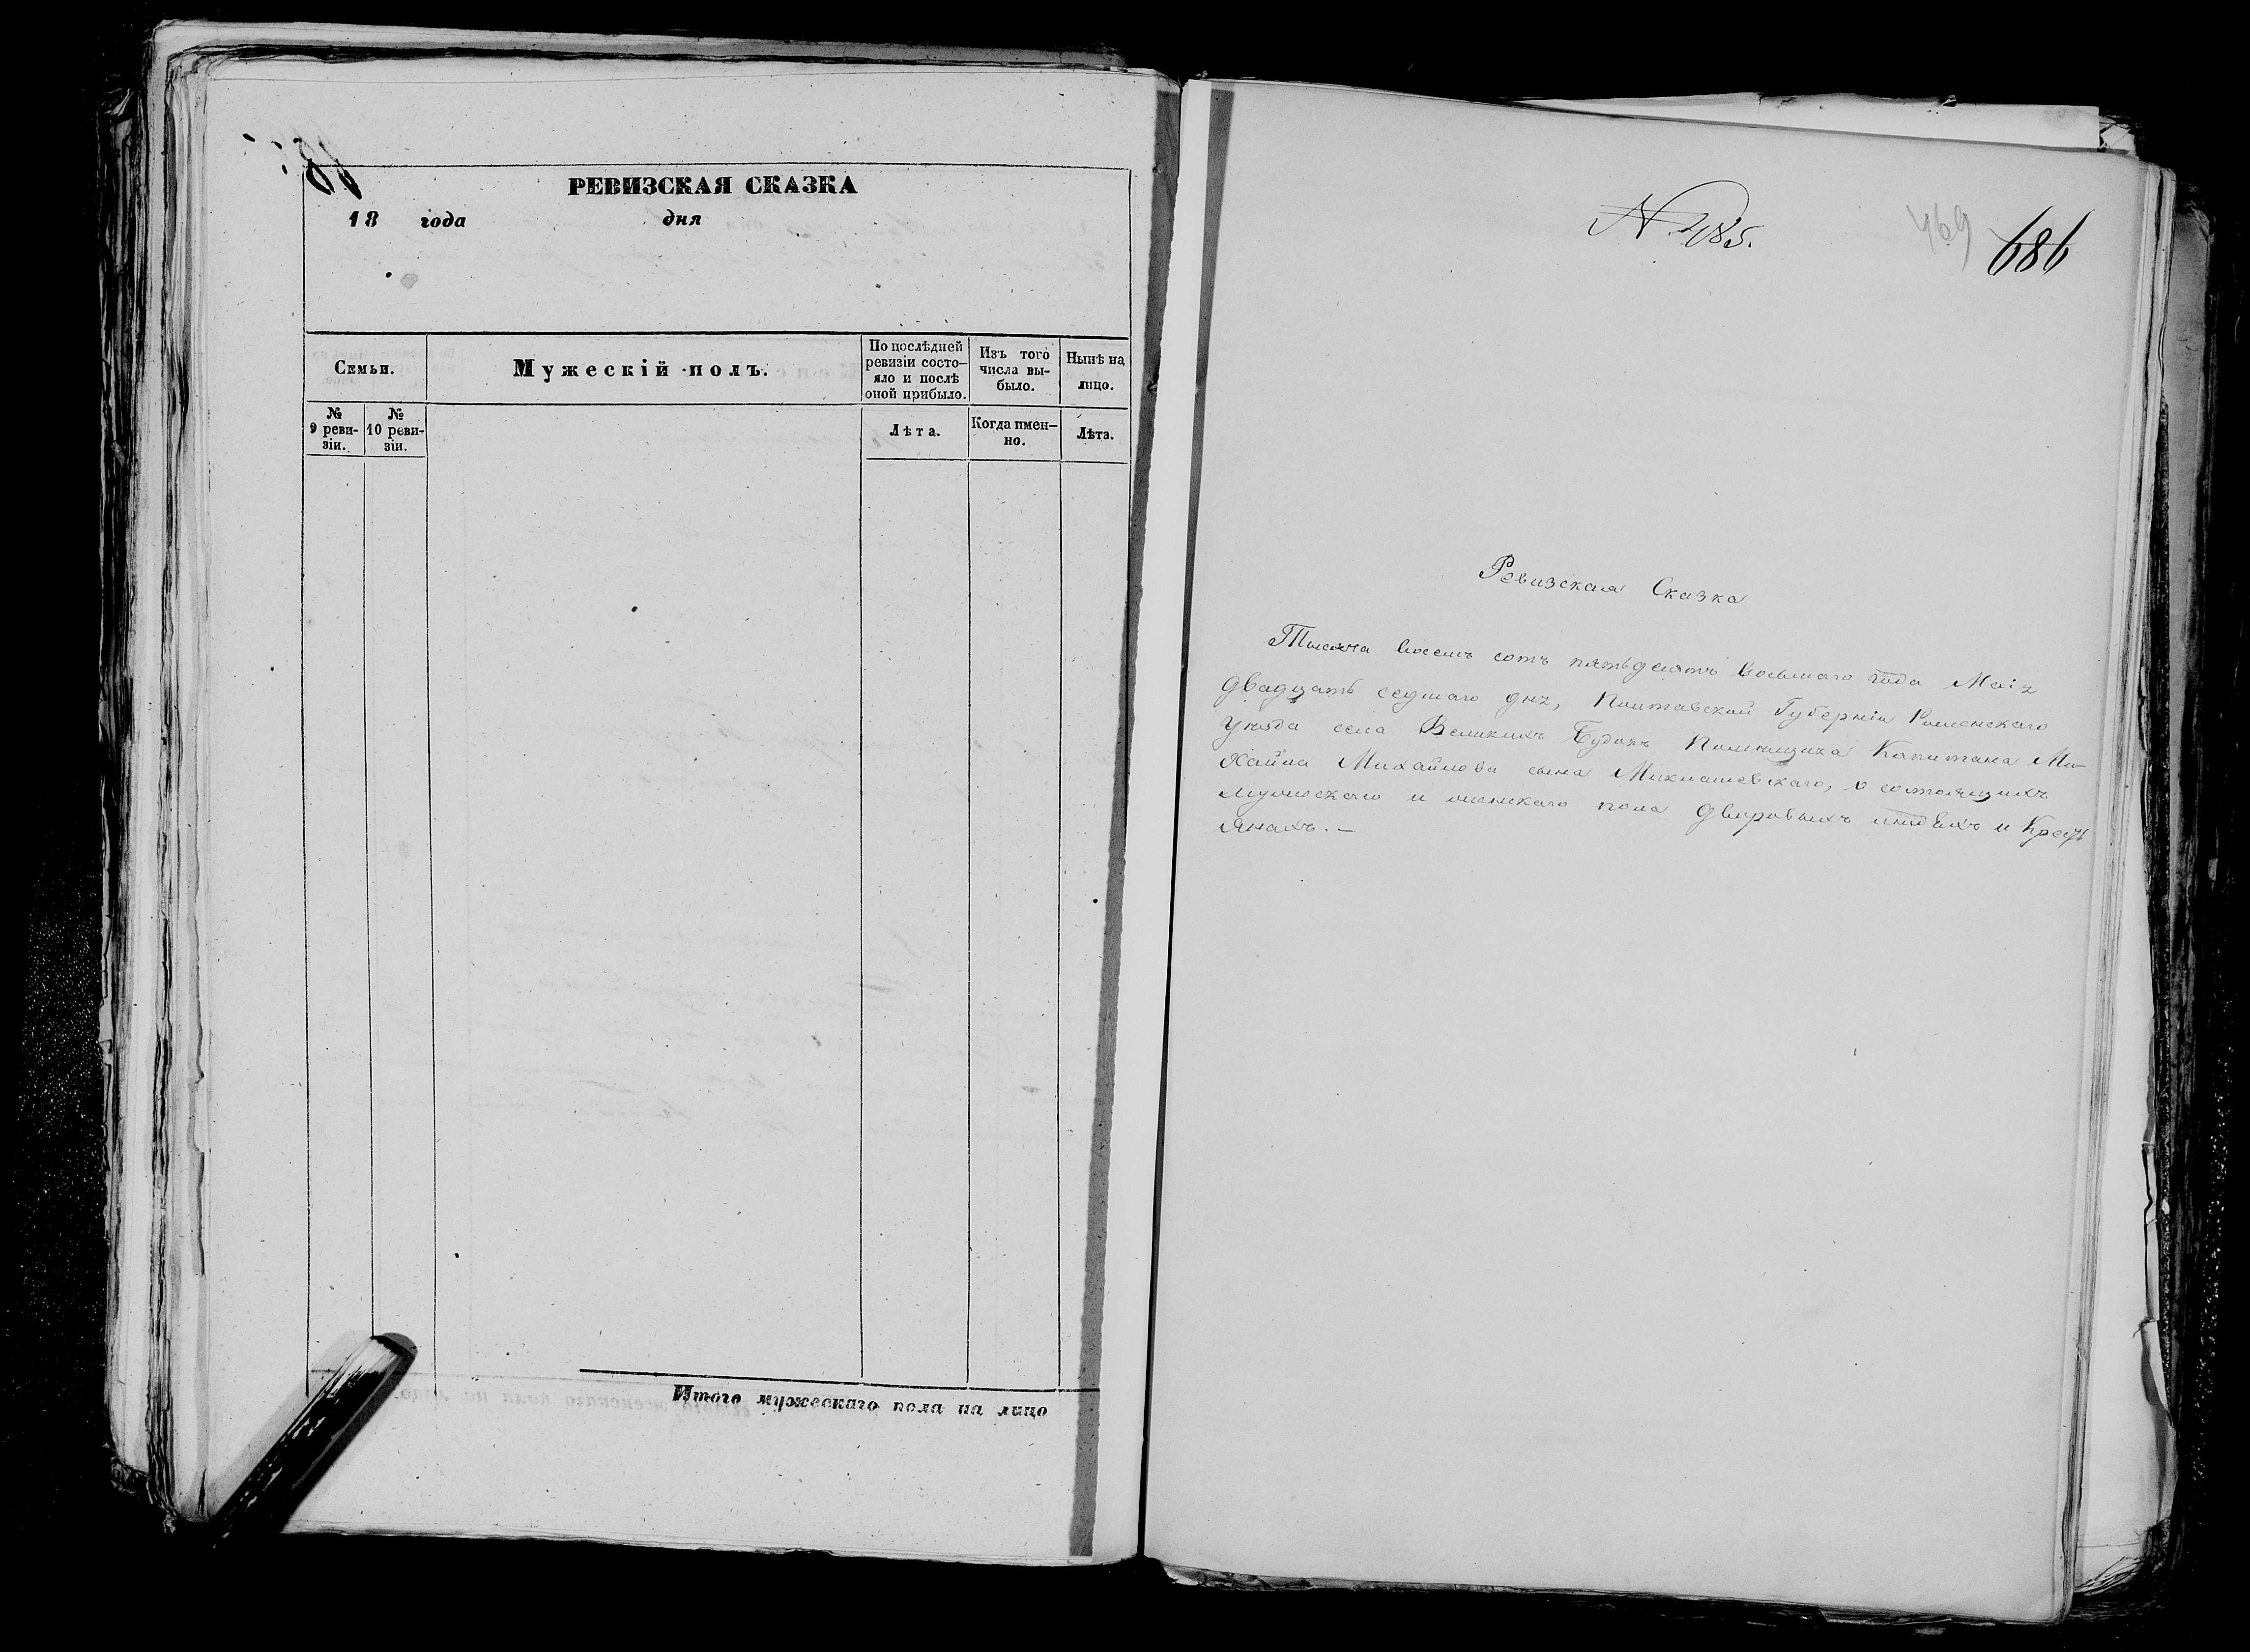 РЕВИЗСКАЯ СКАЗКА
18 года дня
Семьи.
Мужескій полъ.
По послѣдней ревизіи состо-
яло и послѣ
оной прибыло.
Изъ того
числа вы-
было.
Нынѣ на
лицо.
№
9 реви-
зіи.
№
10 реви-
зіи.
Лѣта.
Когда имен-
но.
Лѣта.
Итого мужескаго пола на лицо
N. 485.
469
686
Ревизская Сказка
Тысяча восемь сотъ пятьдесятъ восьмаго года Маія
двадцать седмаго дня, Полтавской Губерніи Роменскаго
уѣзда села Великихъ Будокъ Помѣщика Капитана Ми-
хайла Михайлова сына Миклашевскаго, о состоящихъ
мужескаго и женскаго пола дворовыхъ людяхъ и Кресть
янахъ. —